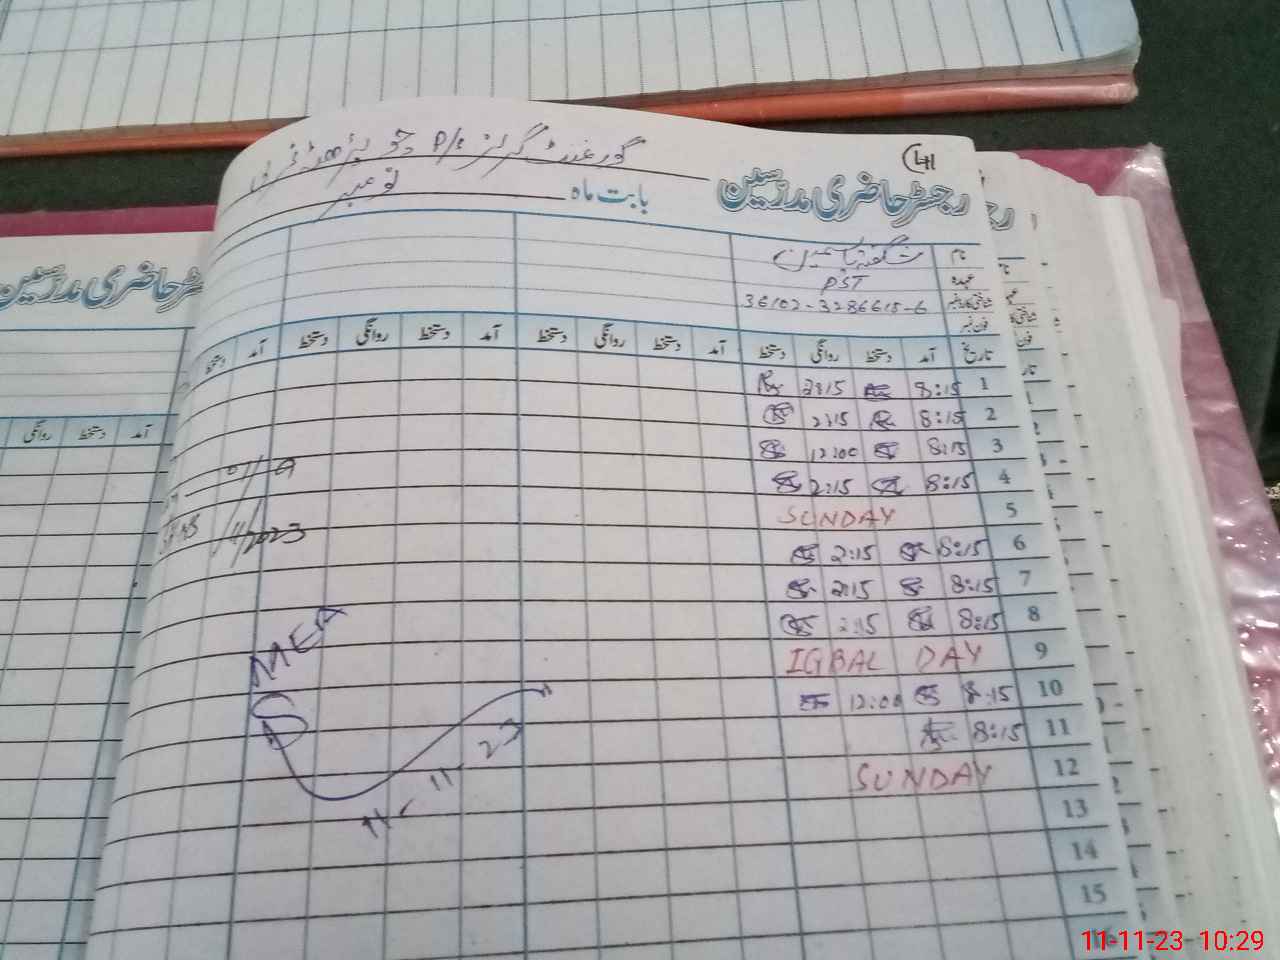 (41
گورنمنٹ گرلز P/S
رجسٹر حاضری مدرسین بابت ماہ نومبر
نام شگفتہ یاسمین
عہدہ PST
شناختی کارڈ نمبر 36102-3286615-6
فون نمبر
تاریخ آمد دستخط روانگی دستخط آمد دستخط روانگی دستخط آمد دستخط روانگی دستخط آمد دستخط
1 8:15 2:15
2 8:15 2:15
3 8:15 12:00
4 8:15 2:15
5 SUNDAY
6 8:15 2:15
7 8:15 2:15
8 8:15 2:15
9 IQBAL DAY
10 8:15 12:00
11 8:15
12 SUNDAY
13
14
15
/11/2023
MEA
11-11-23
رجسٹر حاضری مدرسین
آمد دستخط روانگی
11-11-23 10:29